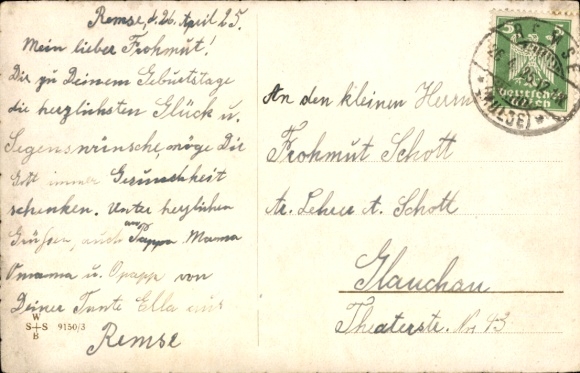 Remse, d. 26. April 25.
Mein lieber Frohmut!
Dir zu Deinem Geburtstage
die herzlichsten Glück u.
Segenswünsche, möge Dir
Gott immer Gesundheit
schenken. Unter herzlichen
Grüßen, auch an Pappa Mama
Omama u. Opapa von
Deiner Tante Ella aus
Remse
An den kleinen Herrn
Frohmut Schott
Ar. Lehrer A. Schott
Glauchau
Theaterstr. No 43
5
Deutsches
Reich
REMSE
W
S S
B
9150/3